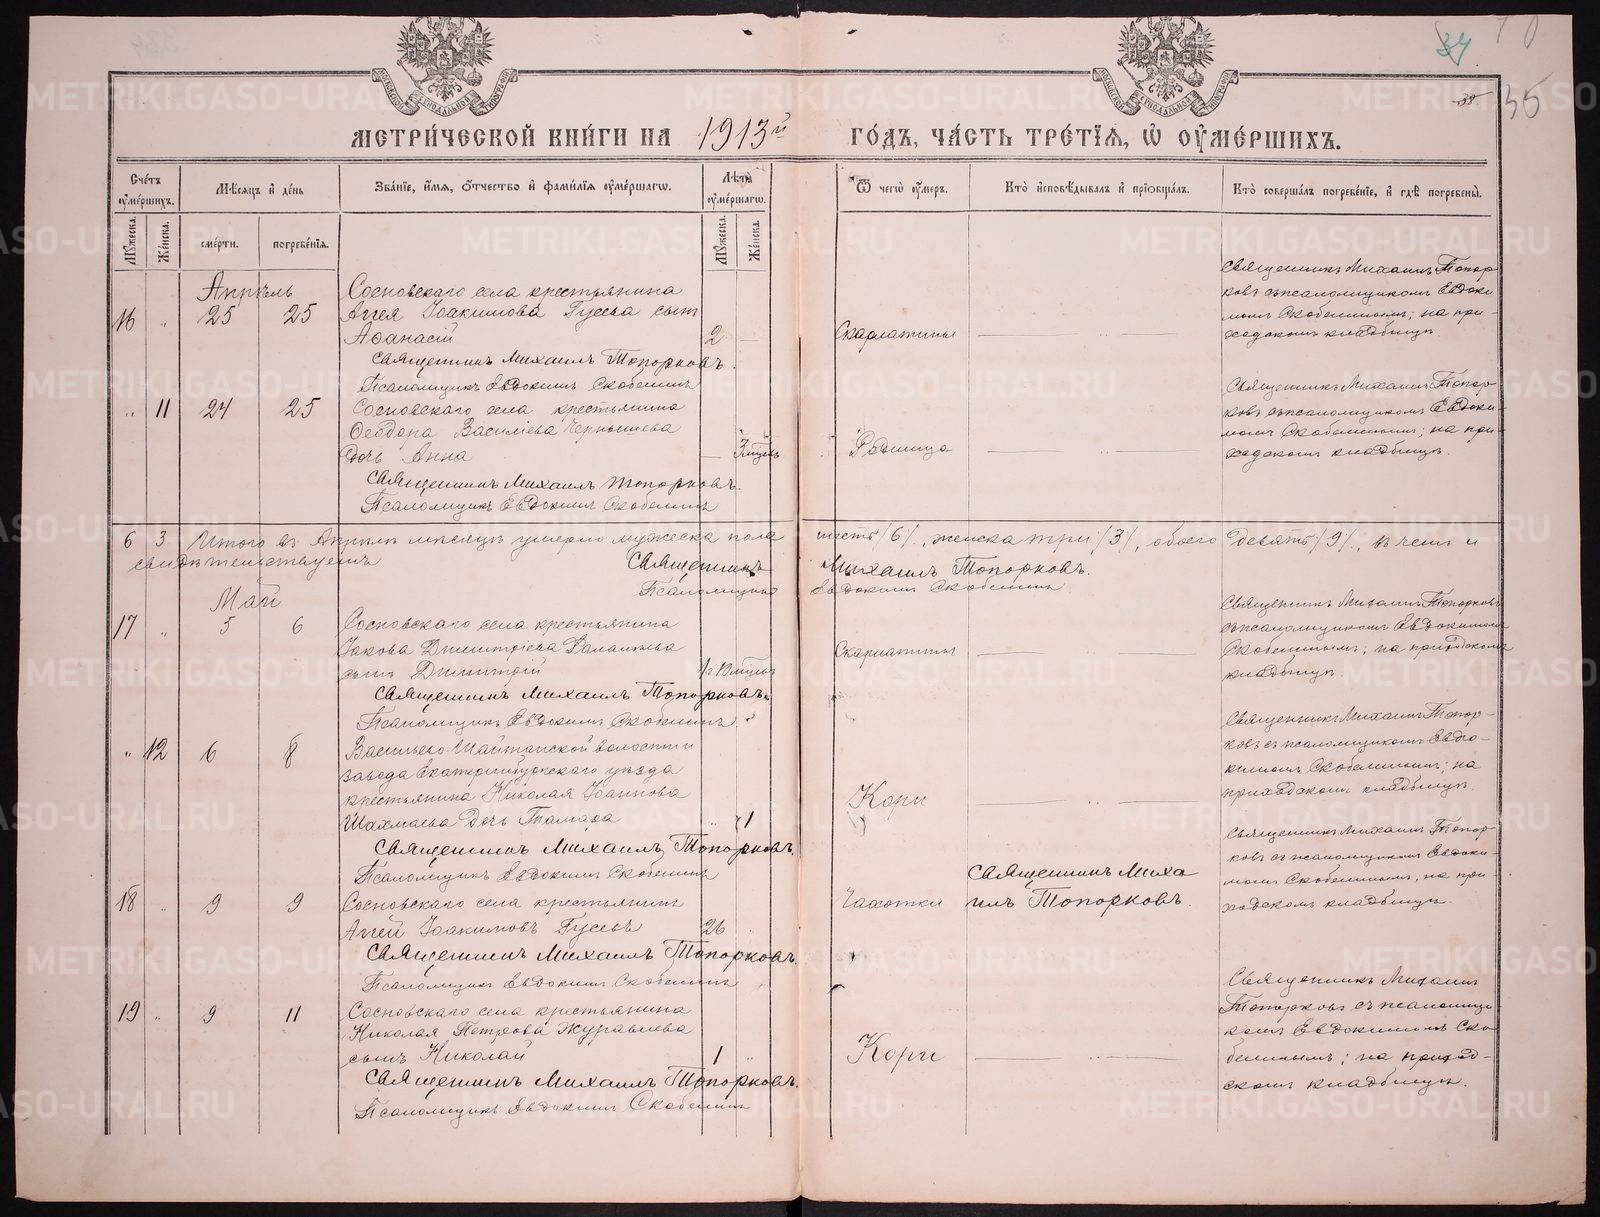 34
35
МЕТРИ́ЧЕСКОЙ КНИ́ГИ НА 1913й ГО́ДЪ, ЧА́СТЬ ТРЕ́ТІѦ, Ѡ ОУМЕ́РШИХЪ.
Сче́тъ оуме́ршихъ.
Мѣ́сяцъ и де́нь
Зва́ніе, и́мя, о́тчество и фами́лія оуме́ршагѡ.
Лѣта̀ оуме́ршагѡ.
Ѿ чегѡ̀ оу́меръ.
Кто̀ исповѣ́дывалъ и пріѡбща́лъ.
Кто̀ соверша́лъ погребе́ніе, и гдѣ̀ погребены̀.
Мꙋ́жеска.
Же́нска.
сме́рти.
погребе́нія.
Мꙋ́жеска.
Же́нска.
Апрѣль
16 „ 25 25
Сосновскаго села крестьянина
Аггея Іоакимова Гусева сынъ
Аѳанасій 2 —
Священникъ Михаилъ Топорковъ.
Псаломщикъ Евдокимъ Скобелинъ
Скарлатины
Священникъ Михаилъ Топор-
ковъ съ псаломщикомъ Евдоки-
момъ Скобелинымъ; на при-
ходскомъ кладбищѣ.
„ 11 24 25
Сосновскаго села крестьянина
Ѳеодора Василіева Чернышева
дочь Анна — 3 мѣсяц.
Священникъ Михаилъ Топорковъ.
Псаломщикъ Евдокимъ Скобелинъ
Родимца
Священникъ Михаилъ Топор-
ковъ съ псаломщикомъ Евдоки-
момъ Скобелинымъ; на при-
ходскомъ кладбищѣ.
6 3 Итого въ Апрѣлѣ мѣсяцѣ умерло мужеска пола шесть /6/, женска три /3/, обоего девять /9/, въ чемъ и
свидѣтельствуемъ Священникъ Михаилъ Топорковъ.
Псаломщикъ Евдокимъ Скобелинъ
Май
17 „ 5 6
Сосновскаго села крестьянина
Іакова Димитріева
сынъ Димитрій
Священникъ Михаилъ Топорковъ.
Псаломщикъ Евдокимъ Скобелинъ
Скарлатины
Священникъ Михаилъ Топорковъ
съ псаломщикомъ Евдокимомъ
Скобелинымъ; на приходскомъ
кладбищѣ.
„ 12 6 8
Васильево-Шайтанской волости и
завода Екатеринбургскаго уѣзда
крестьянина Николая Іоаннова
Шахмаева дочь Тамара „ 1
Священникъ Михаилъ Топорковъ.
Псаломщикъ Евдокимъ Скобелинъ
Кори
Священникъ Михаилъ Топор-
ковъ съ псаломщикомъ Евдо-
кимомъ Скобелинымъ; на
приходскомъ кладбищѣ.
18 „ 9 9
Сосновскаго села крестьянинъ
Аггей Іоакимовъ Гусевъ 26
Священникъ Михаилъ Топорковъ.
Псаломщикъ Евдокимъ Скобелинъ
Чахотки
Священникъ Миха
илъ Топорковъ.
Священникъ Михаилъ Топор-
ковъ съ псаломщикомъ Евдоки-
момъ Скобелинымъ, на при-
ходскомъ кладбищѣ.
19 „ 9 11
Сосновскаго села крестьянина
Николая Петрова Журавлева
сынъ Николай 1 „
Священникъ Михаилъ Топорковъ.
Псаломщикъ Евдокимъ Скобелинъ
Кори
Священникъ Михаилъ
Топорковъ съ псаломщи-
комъ Евдокимомъ Ско-
белинымъ; на приход-
скомъ кладбищѣ.
METRIKI.GASO-URAL.RU